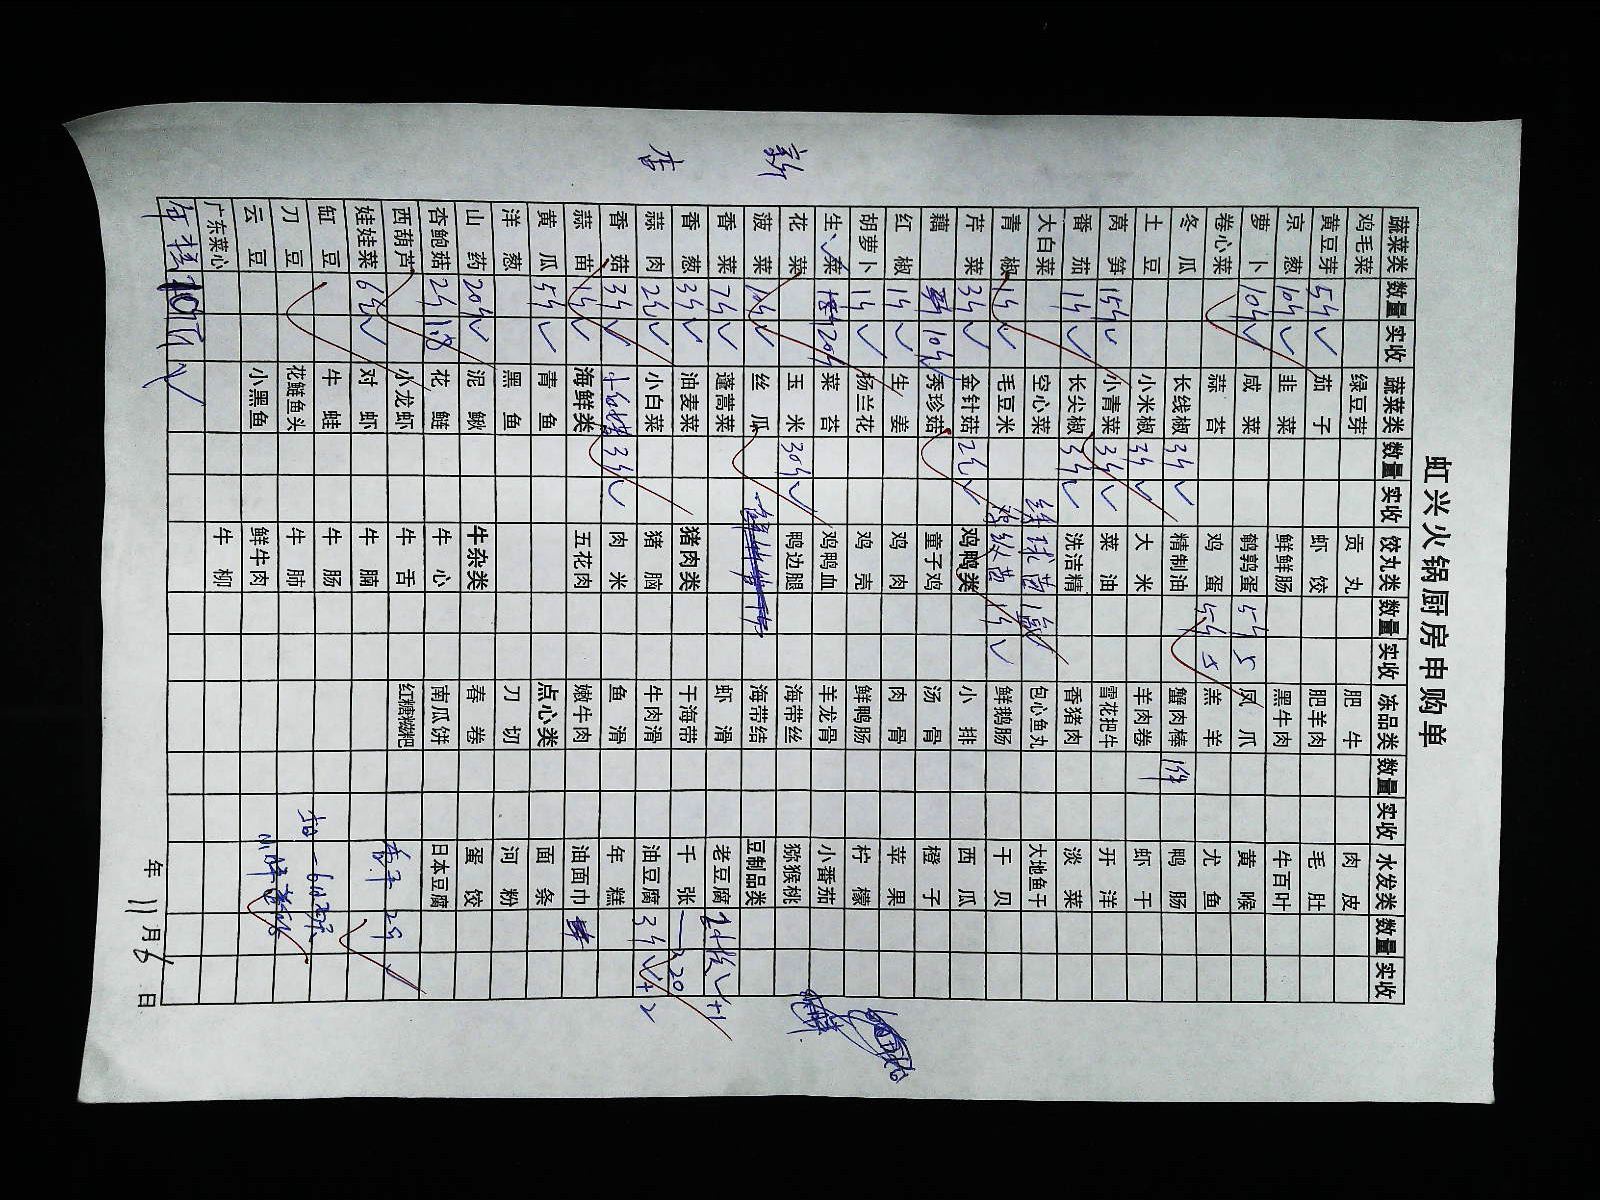 新店
虹兴火锅厨房申购单
蔬菜类 数量 实收 蔬菜类 数量 实收 饺丸类 数量 实收 冻品类 数量 实收 水发类 数量 实收
鸡毛菜 绿豆芽 贡丸 肥牛 肉皮
黄豆芽 5斤 √ 茄子 虾饺 肥羊肉 毛肚
京葱 10斤 √ 韭菜 鲜鲜肠 黑牛肉 牛百叶
萝卜 10斤 √ 咸菜 鹌鹑蛋 5斤 5 凤爪 黄喉
卷心菜 蒜苔 鸡蛋 5斤 5 羔羊 尤鱼
冬瓜 长线椒 3斤 √ 精制油 蟹肉棒 1件 鸭肠
土豆 小米椒 3斤 √ 大米 羊肉卷 虾干
莴笋 15斤 √ 小青菜 3斤 √ 菜油 雪花把牛 开洋
番茄 1斤 √ 长尖椒 3斤 √ 洗洁精 香猪肉 淡菜
大白菜 空心菜 绣球菌 1盒 包心鱼丸 大地鱼干
青椒 1斤 √ 毛豆米 1斤 √ 鲜鹅肠 干贝
芹菜 3斤 √ 金针菇 2斤 √ 鸡鸭类 小排 西瓜
藕 10斤 秀珍菇 童子鸡 汤骨 橙子
红椒 1斤 √ 生姜 鸡肉 肉骨 苹果
胡萝卜 1斤 √ 杨兰花 鸡壳 鲜鸭肠 柠檬
生菜 20斤 菜苔 鸡鸭血 羊龙骨 小番茄
花菜 玉米 30斤 √ 鸭边腿 海带丝 猕猴桃
菠菜 10斤 √ 丝瓜 海带结 豆制品类
香菜 7斤 √ 蓬蒿菜 虾滑 老豆腐 √+1
香葱 3斤 √ 油麦菜 猪肉类 干海带 千张 20
蒜肉 2斤 √ 小白菜 猪脑 牛肉滑 油豆腐 3斤 √+2
香菇 3斤 √ 3斤 √ 肉米 鱼滑 年糕
蒜苗 1斤 √ 海鲜类 五花肉 嫩牛肉 油面巾
黄瓜 5斤 √ 青鱼 点心类 面条
洋葱 黑鱼 刀切 河粉
山药 20斤 √ 泥鳅 牛杂类 春卷 蛋饺
杏鲍菇 2斤 1.8 花鲢 牛心 南瓜饼 日本豆腐
西葫芦 小龙虾 牛舌 红糖糍粑 香干 2斤
娃娃菜 6斤 √ 对虾 牛腩
缸豆 牛蛙 牛肠
刀豆 花鲢鱼头 牛肺
云豆 小黑鱼 鲜牛肉
广东菜心 牛柳
年 11月6日